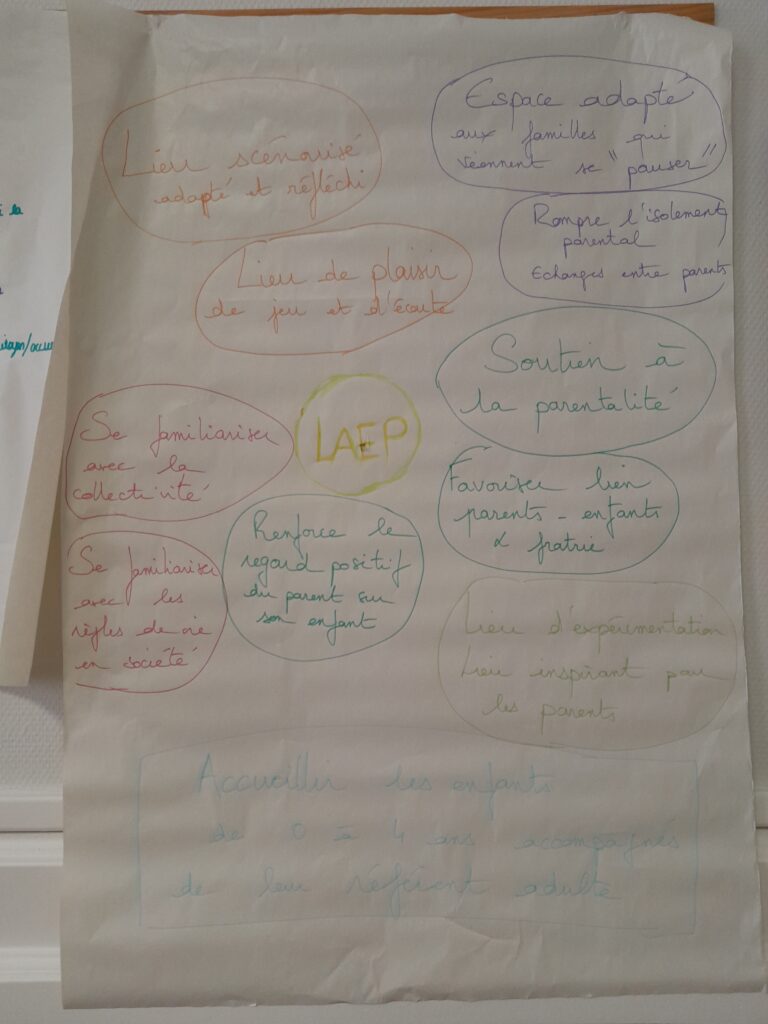 Lieu scénarisé
adapté et réfléchi
Espace adapté
aux familles qui
viennent se "pauser"
Rompre l'isolement
parental
Echanges entre parents
Lieu de plaisir
de jeu et d'écoute
Soutien à
la parentalité
LAEP
Se familiariser
avec la
collectivité
Favoriser lien
parents - enfants
& fratrie
Renforce le
regard positif
du parent sur
son enfant
Se familiariser
avec les
règles de vie
en société
Lieu d'expérimentation
Lieu inspirant pour
les parents
Accueillir les enfants
de 0 à 4 ans accompagnés
de leur référent adulte
à la